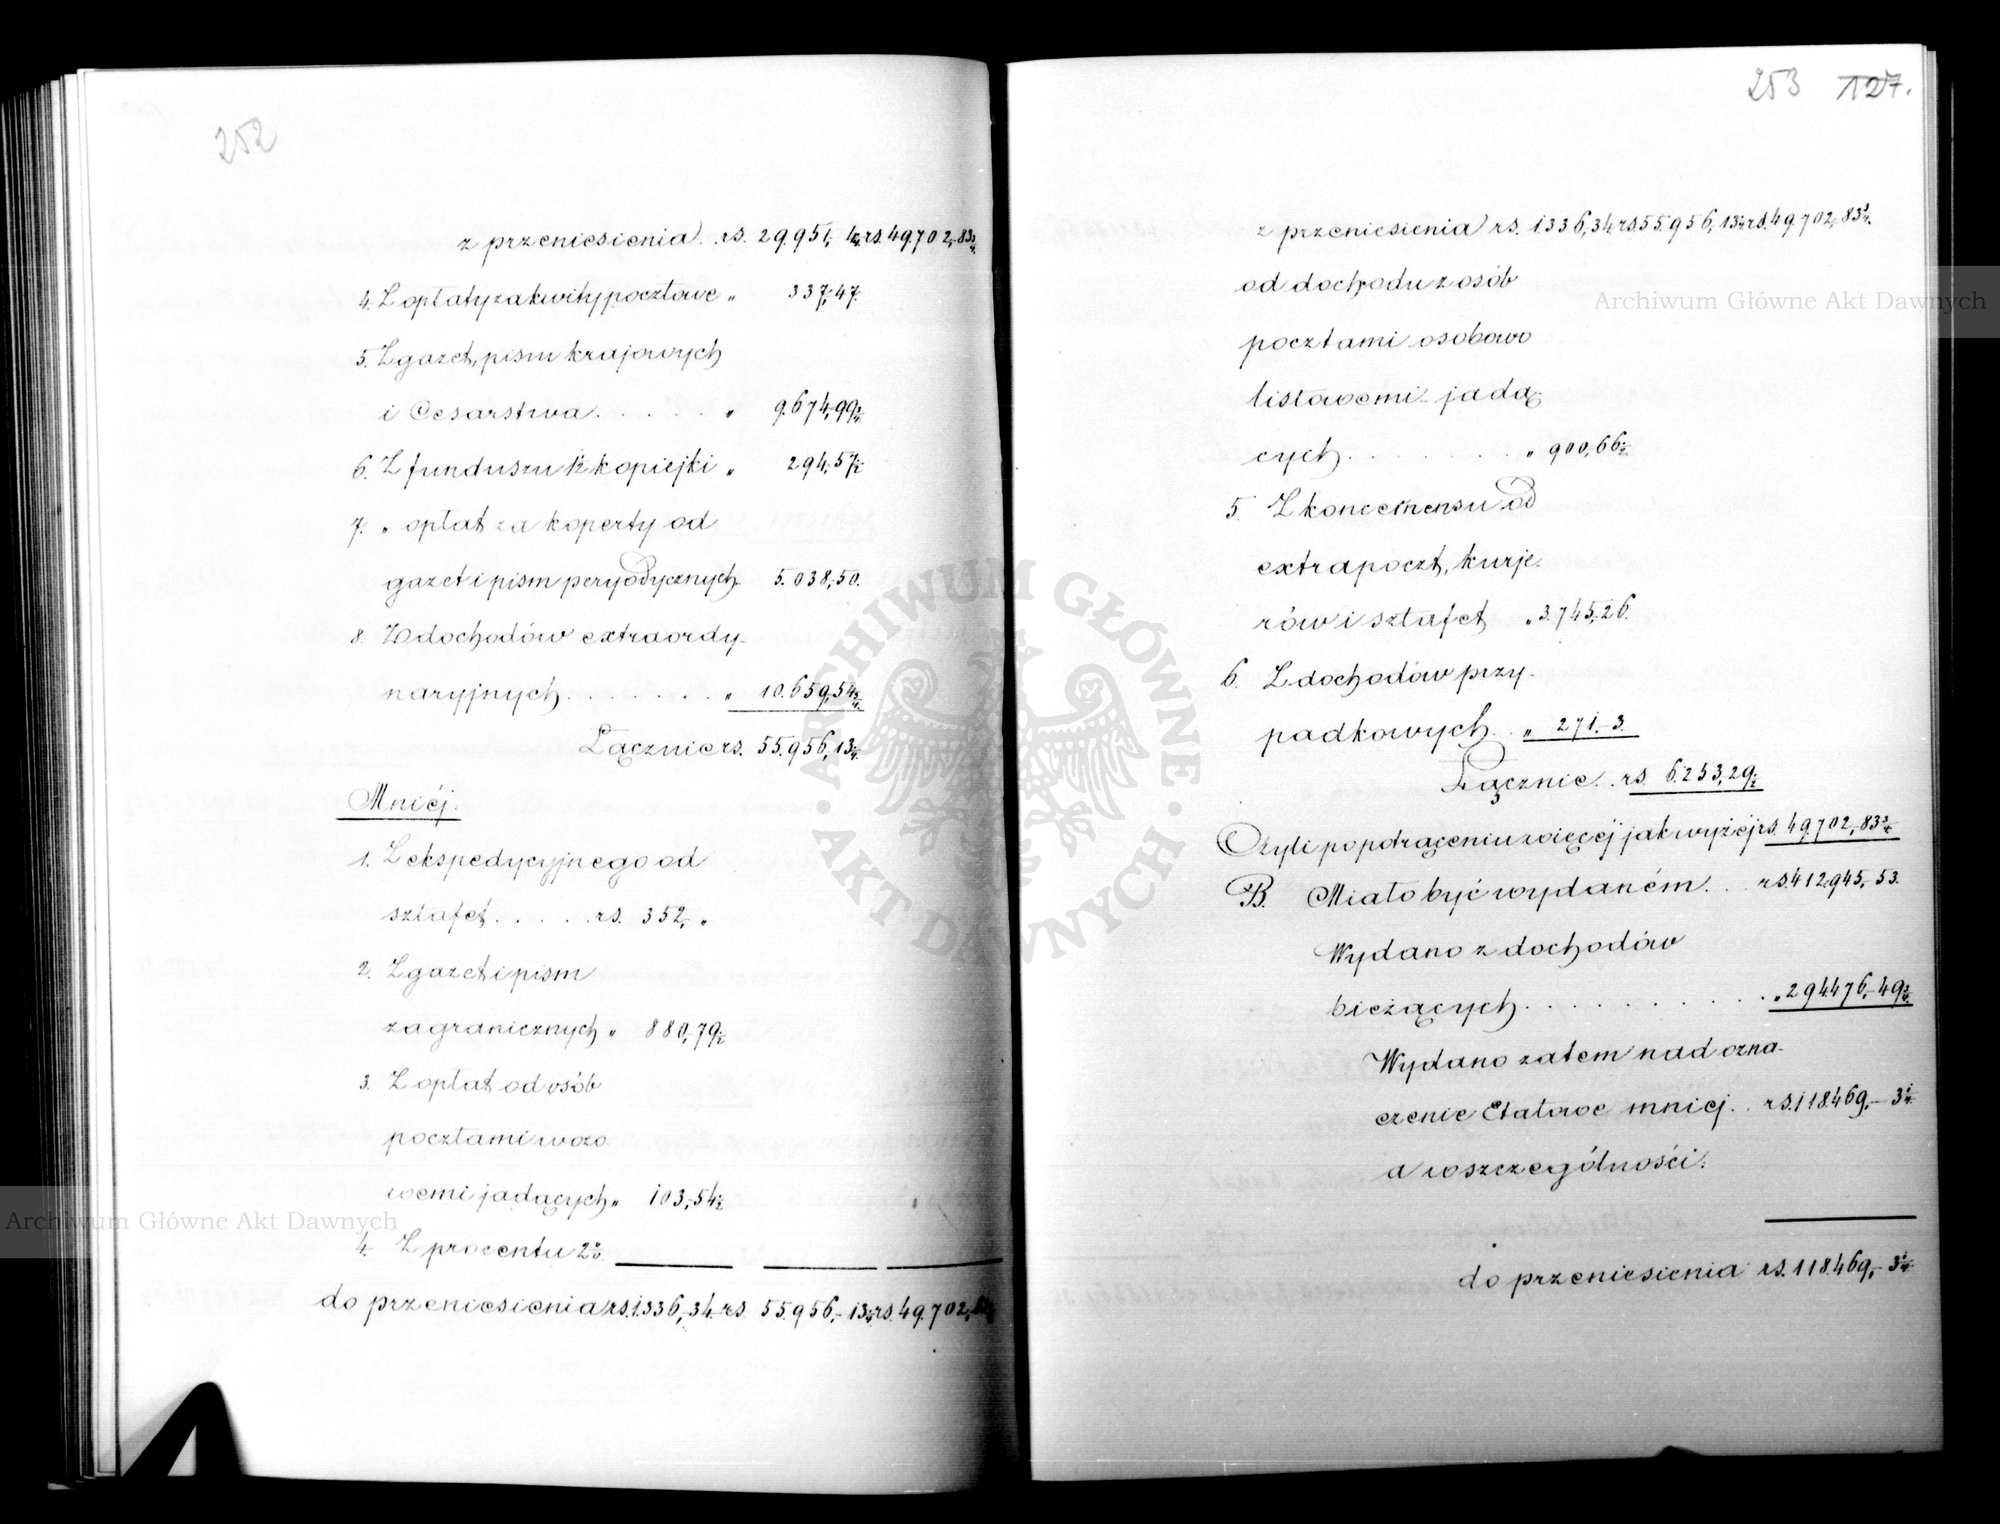 252
z przeniesienia . rs. 29.951, rs. 49.702,-83¾
4. Z opłaty za kwity pocztowe „ 337,47.
5. Z gazet, pism krajowych
i Cesarstwa . . . . . „ 9.674,99¾
6. Z funduszu ½ kopiejki „ 294,57½
7. „ opłat za koperty od
gazet i pism peryodycznych. 5.038,50.
8. Z dochodów extraordy-
naryjnych . . . . . . . „ 10.659,54¾
Łącznie rs. 55.956,13¼
Mniéj.
1. Z ekspedycyjnego od
sztafet . . . . . rs. 352,- „
2. Z gazet i pism
zagranicznych „ 880,79½
3. Z opłat od osób
pocztami wozo
wemi jadących „ 103,-54½
4. Z procentu 2%
do przeniesienia rs. 1.336,-34.- rs 55.956,-13¼ rs. 49.702,
253 127.
z przeniesienia rs. 1336,34. rs. 55.956,13¼ rs. 49.702,-83¾.
od dochodu z osób
pocztami osobowo
listowemi jadą
cych . . . . . . . . „ 900,66½
5. Z koncensu od
extrapoczt, kurje-
rów i sztafet „ 3.745,26.
6. Z dochodów przy-
padkowych . . „ 271.-3.
Łącznie . . rs. 6.253,29½
Czyli po potrąceniu więcéj jak wyżej rs. 49.702,-83¾
B. Miało być wydaném . . . rs. 412.945,-53.
Wydano z dochodów
bieżących . . . . . . . . . . . „ 294.476,-49¾
Wydano zatem nad ozna-
czenie Etatowe mniej . . rs. 118.469,-3¼
a w szczególności:
do przeniesienia rs. 118.469,-3¼
Archiwum Główne Akt Dawnych
Archiwum Główne Akt Dawnych
ARCHIWUM GŁÓWNE
AKT DAWNYCH